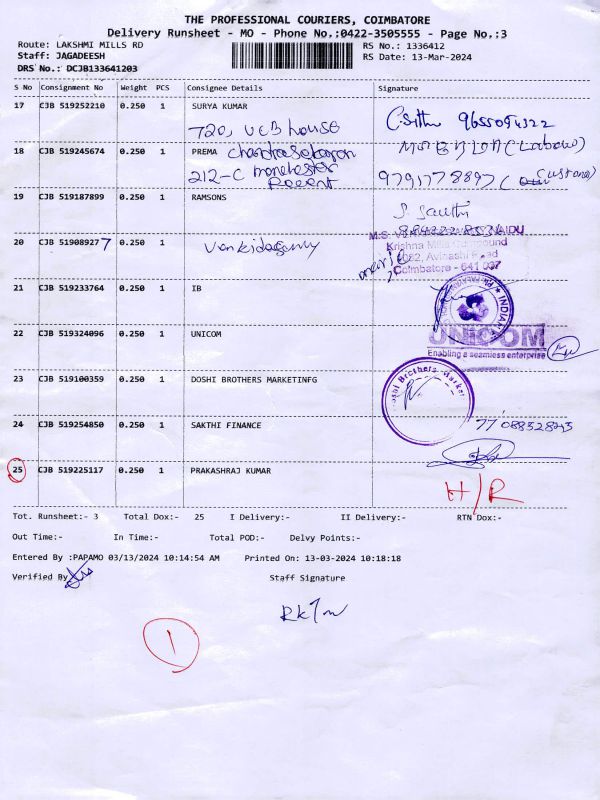 THE PROFESSIONAL COURIERS, COIMBATORE
Delivery Runsheet - MO - Phone No.:0422-3505555 - Page No.:3
Route: LAKSHMI MILLS RD RS No.: 1336412
Staff: JAGADEESH RS Date: 13-Mar-2024
DRS No.: DCJB133641203
S No Consignment No Weight PCS Consignee Details Signature
17 CJB 519252210 0.250 1 SURYA KUMAR
720, UCB house
18 CJB 519245674 0.250 1 PREMA Chandrasekaran (Labour)
212-C manchester 9791778897 (Customer)
Recent
19 CJB 519187899 0.250 1 RAMSONS
20 CJB 519089277 0.250 1 NAIDU
Krishna Mills Compound
Avinashi Road
Coimbatore - 641 037
21 CJB 519233764 0.250 1 IB
INDIAN
22 CJB 519324096 0.250 1 UNICOM
UNICOM
Enabling a seamless enterprise
23 CJB 519100359 0.250 1 DOSHI BROTHERS MARKETINFG
Doshi Brothers Market
24 CJB 519254850 0.250 1 SAKTHI FINANCE
25 CJB 519225117 0.250 1 PRAKASHRAJ KUMAR
H/R
Tot. Runsheet:- 3 Total Dox:- 25 I Delivery:- II Delivery:- RTN Dox:-
Out Time:- In Time:- Total POD:- Delvy Points:-
Entered By :PAPAMO 03/13/2024 10:14:54 AM Printed On: 13-03-2024 10:18:18
Verified By Staff Signature
1